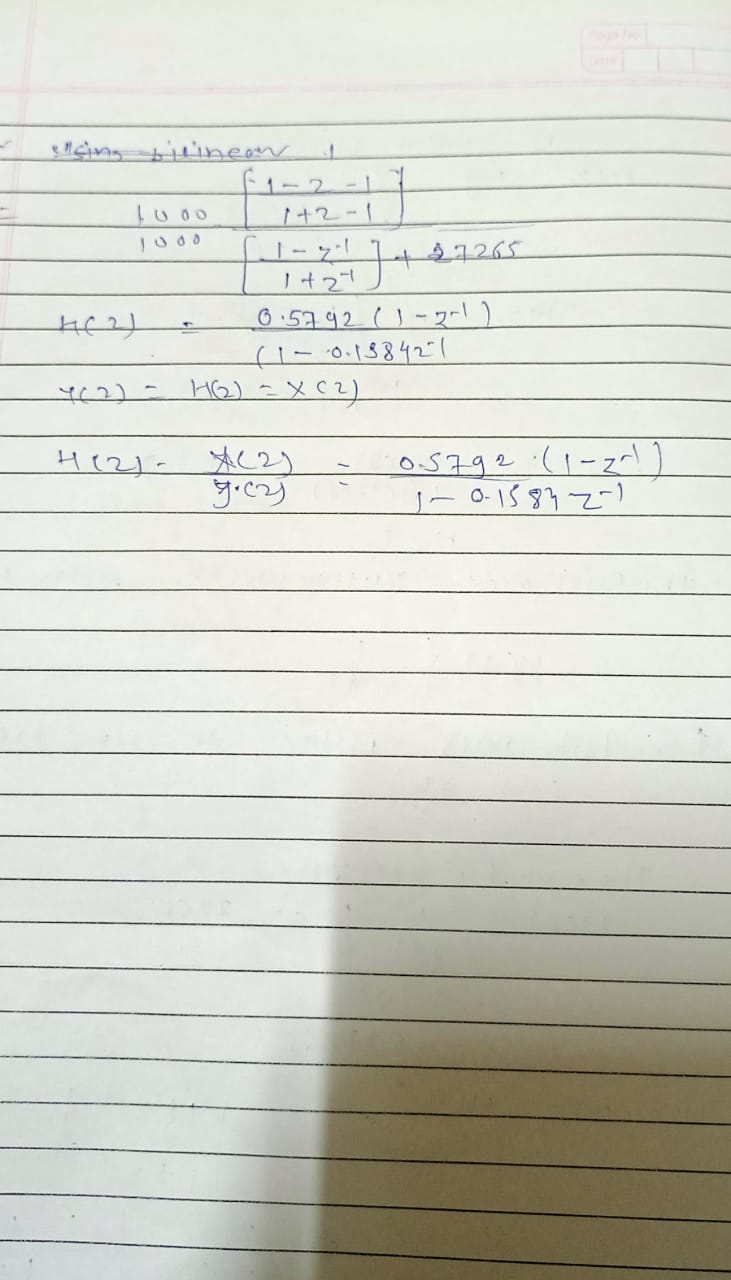 Page No.
Date
using bilinear
1000 [1-2-1 / 1+2-1]
1000 [1-z-1 / 1+z-1] + 7265
H(2) = 0.5792 (1-z-1)
(1- 0.15842-1
Y(2) = H(2) = X(2)
H(2) - X(2) / y.(2) = 0.5792 .(1-z-1) / 1- 0.1584 z-1